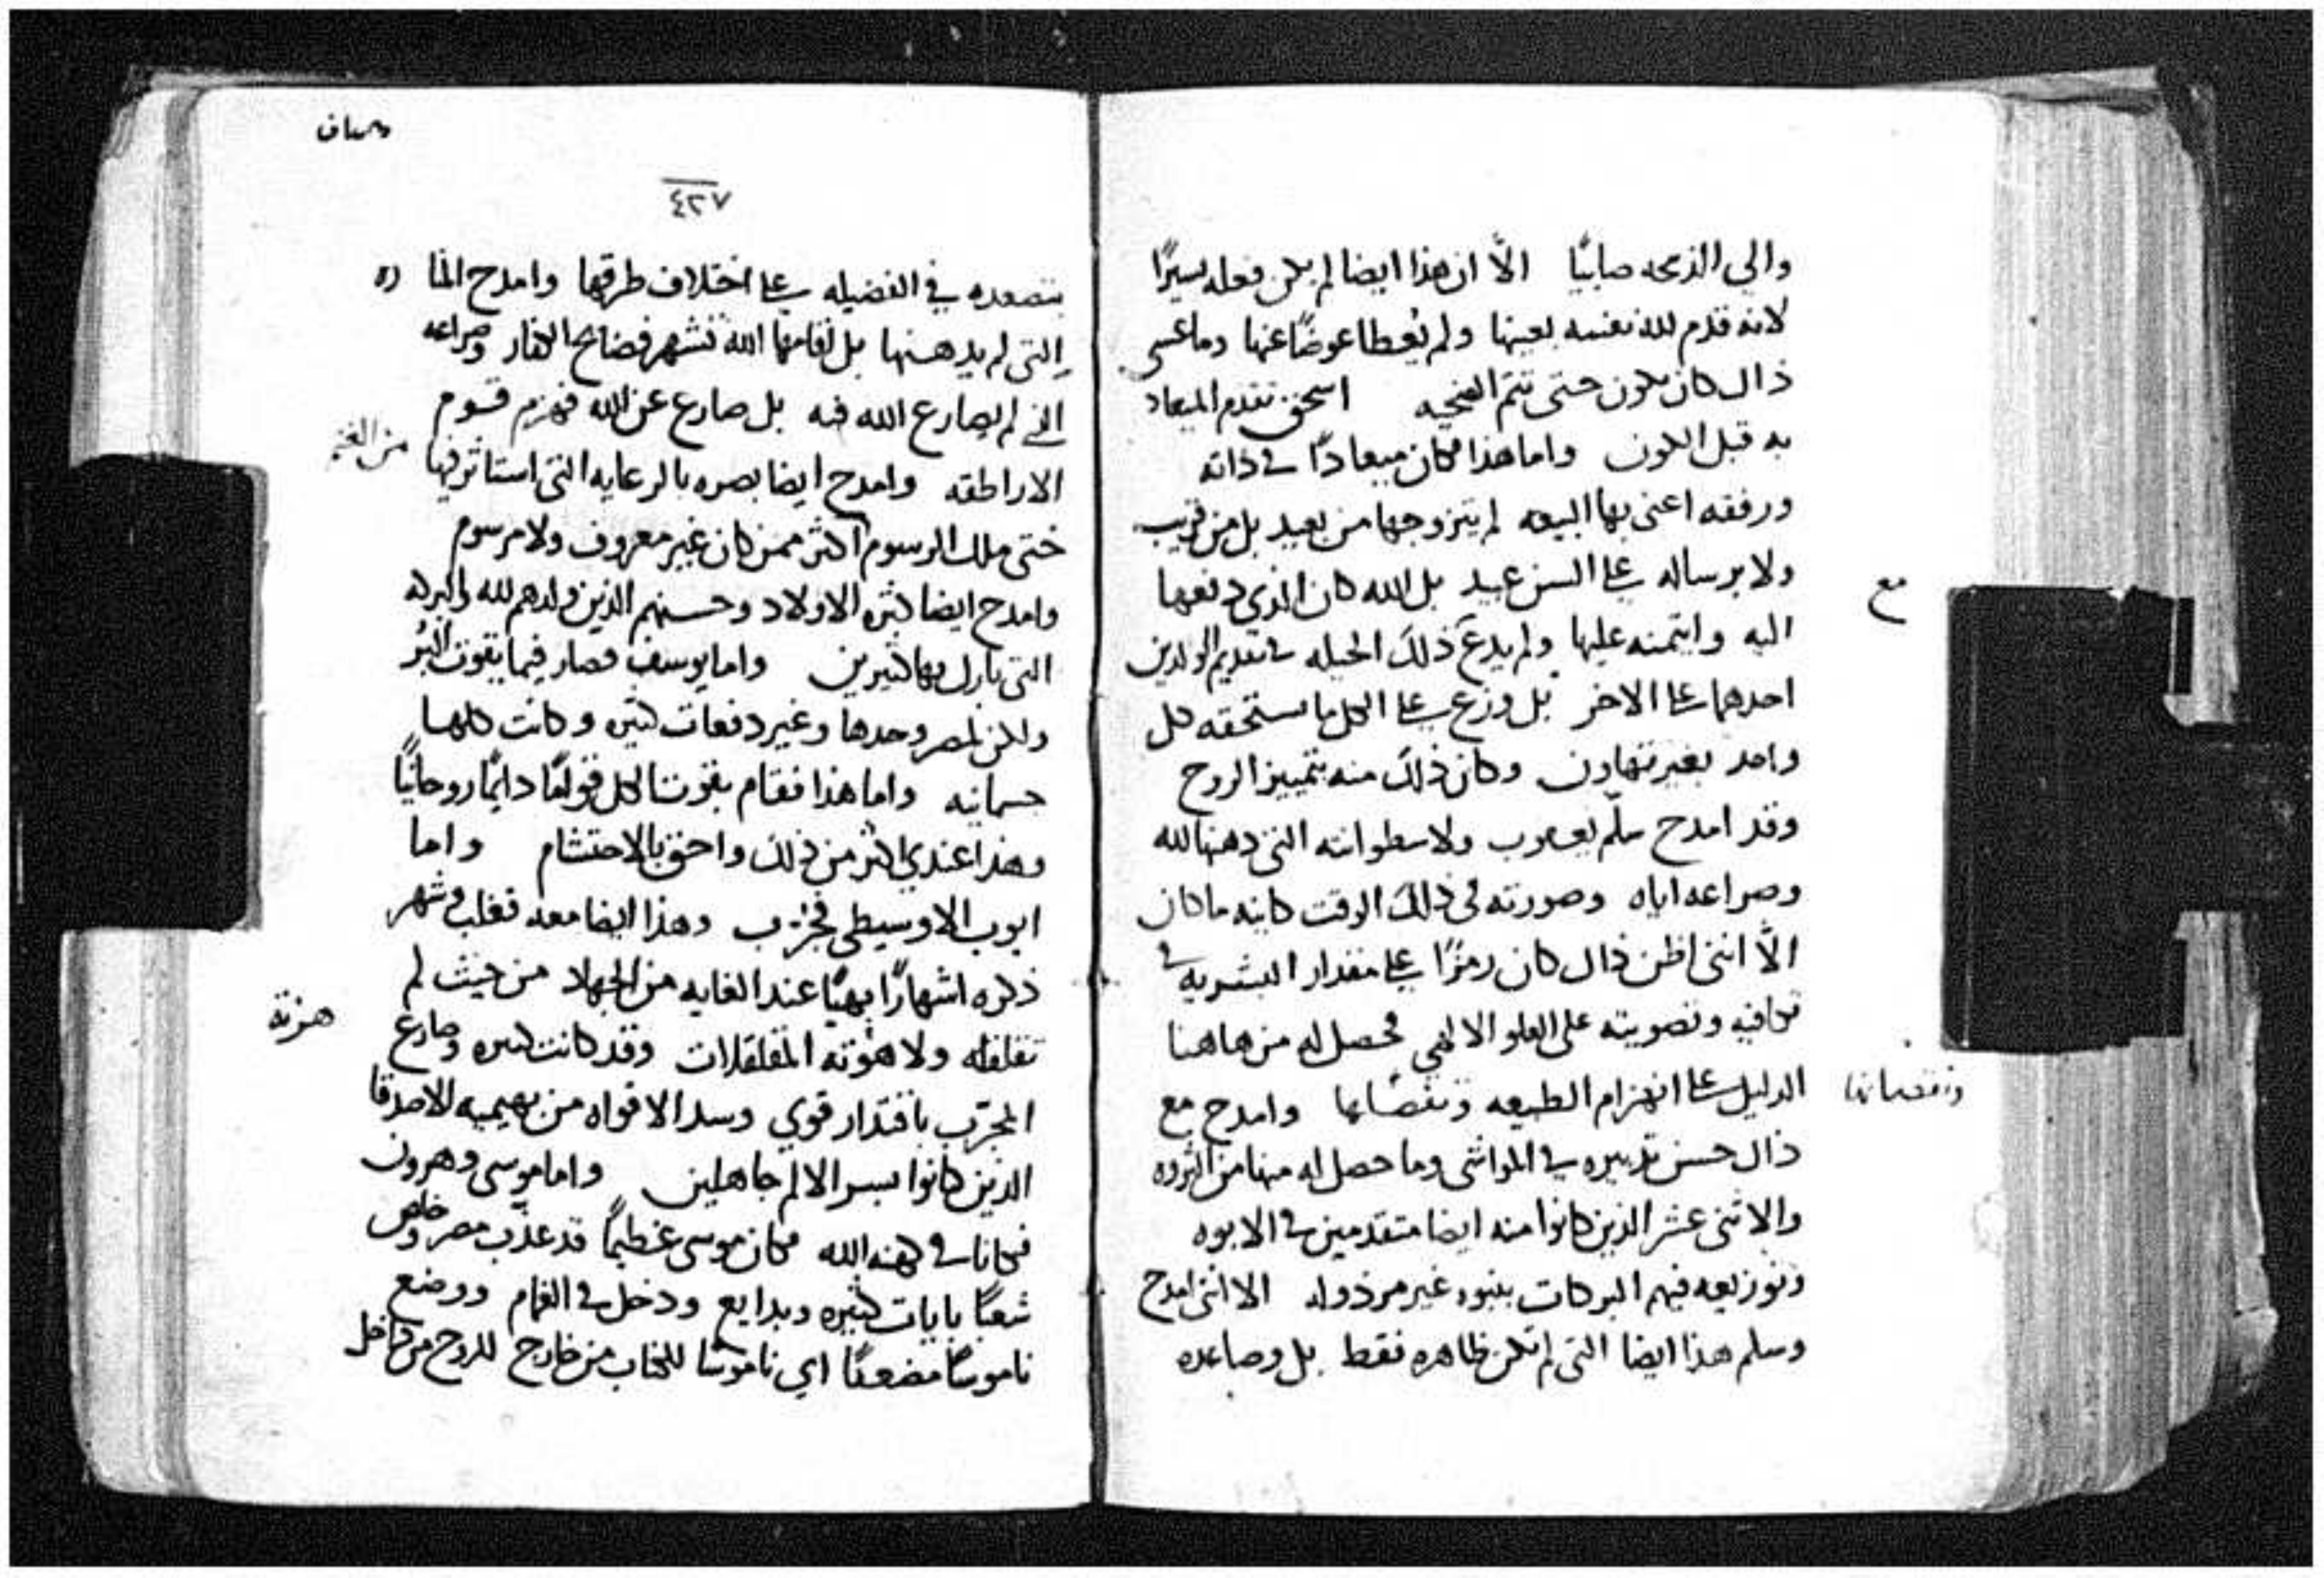 والي الذبحه صابيًا الّا ان هذا ايضا لم يكن فعله يسيرًا
لانه قدم لله نفسه بعينها ولم يُعطا عوضًا عنها وما عسى
ذاك كان يكون حتى تتم الضحيه اسحق تقدم الميعاد
به قبل الكون واما هذا فكان ميعادًا في ذاته
ورفقه اعني بها البيعه لم يتزوجها من بعيد بل من قريب
ولا برساله على السن عبيد بل الله كان الذي دفعها
اليه وايتمنه عليها ولم يدع ذلك الحيله في تقديم الولدين
احدهما على الاخر بل وزع على الكل ما يستحقه كل
واحد بغير تهاون وكان ذلك منه بتمييز الروح
وقد امدح سلّم يعقوب ولاسطوانته التي دهنها لله
وصراعه اياه وصورته في ذلك الوقت كاينه ما كان
الّا انني اظن ذاك كان رمزًا على مقدار البشريه في
على العلو الالهي فحصل له من هاهنا
الدليل على انهزام الطبيعه ونقصانها وامدح مع
ذاك حسن تدبيره في المواشي وما حصل له منها من الثروه
والاثني عشر الذين كانوا منه ايضا متقدمين في الابوه
وتوزيعه فيهم البركات بنبوه غير مرذوله الا انني امدح
وسلم هذا ايضا التي لم تكن ظاهره فقط بل وصاعده
مع
ونقصانها
٤٢٧
بتصعده في الفضيله على اختلاف طرقها وامدح المنا ره
التي لم يدهنها بل اقامها الله تشهر فضايح الكفار وصراعه
الذي لم يصارع الله فيه بل صارع عن الله فهزم قسوم
الاراطقه وامدح ايضا بصره بالرعايه التي استاثر فيها
من الغنم
حتى ملك المرسوم اكثر ممن كان غير معروف ولا مرسوم
وامدح ايضا كثره الاولاد وحسنهم الذين ولدهم لله والبركه
التي بارك بها كثيرين واما يوسف فصار فيما يقوت البُر
ولكن لمصر وحدها وغير دفعات كثيره وكانت كلها
جسمانيه واما هذا فقام بقوت الكل قولًا دايمًا روحانيًا
وهذا عندي اكثر من ذلك واحق بالاحتشام واما
ايوب الاوسيطي فجُرّب وهذا ايضا معه فغلب وشهر
ذكره اشهارًا بهيًا عند الغايه من الجهاد من حيث لم
تقلقله ولا هزته المقلقلات وقد كانت كثيره وصارع
هزته
المجرّب باقتدار قوي وسد الافواه من بهيميه الاصدقا
الذين كانوا بسر الالم جاهلين واما موسى وهرون
فكانا في كهنه الله فكان موسى عظيمًا قد عذّب مصر وخلص
شعبًا بايات كثيره وبدايع ودخل في الغمام ووضع
ناموسًا مضعفًا اي ناموسًا للكتاب من خارج للروح من داخل